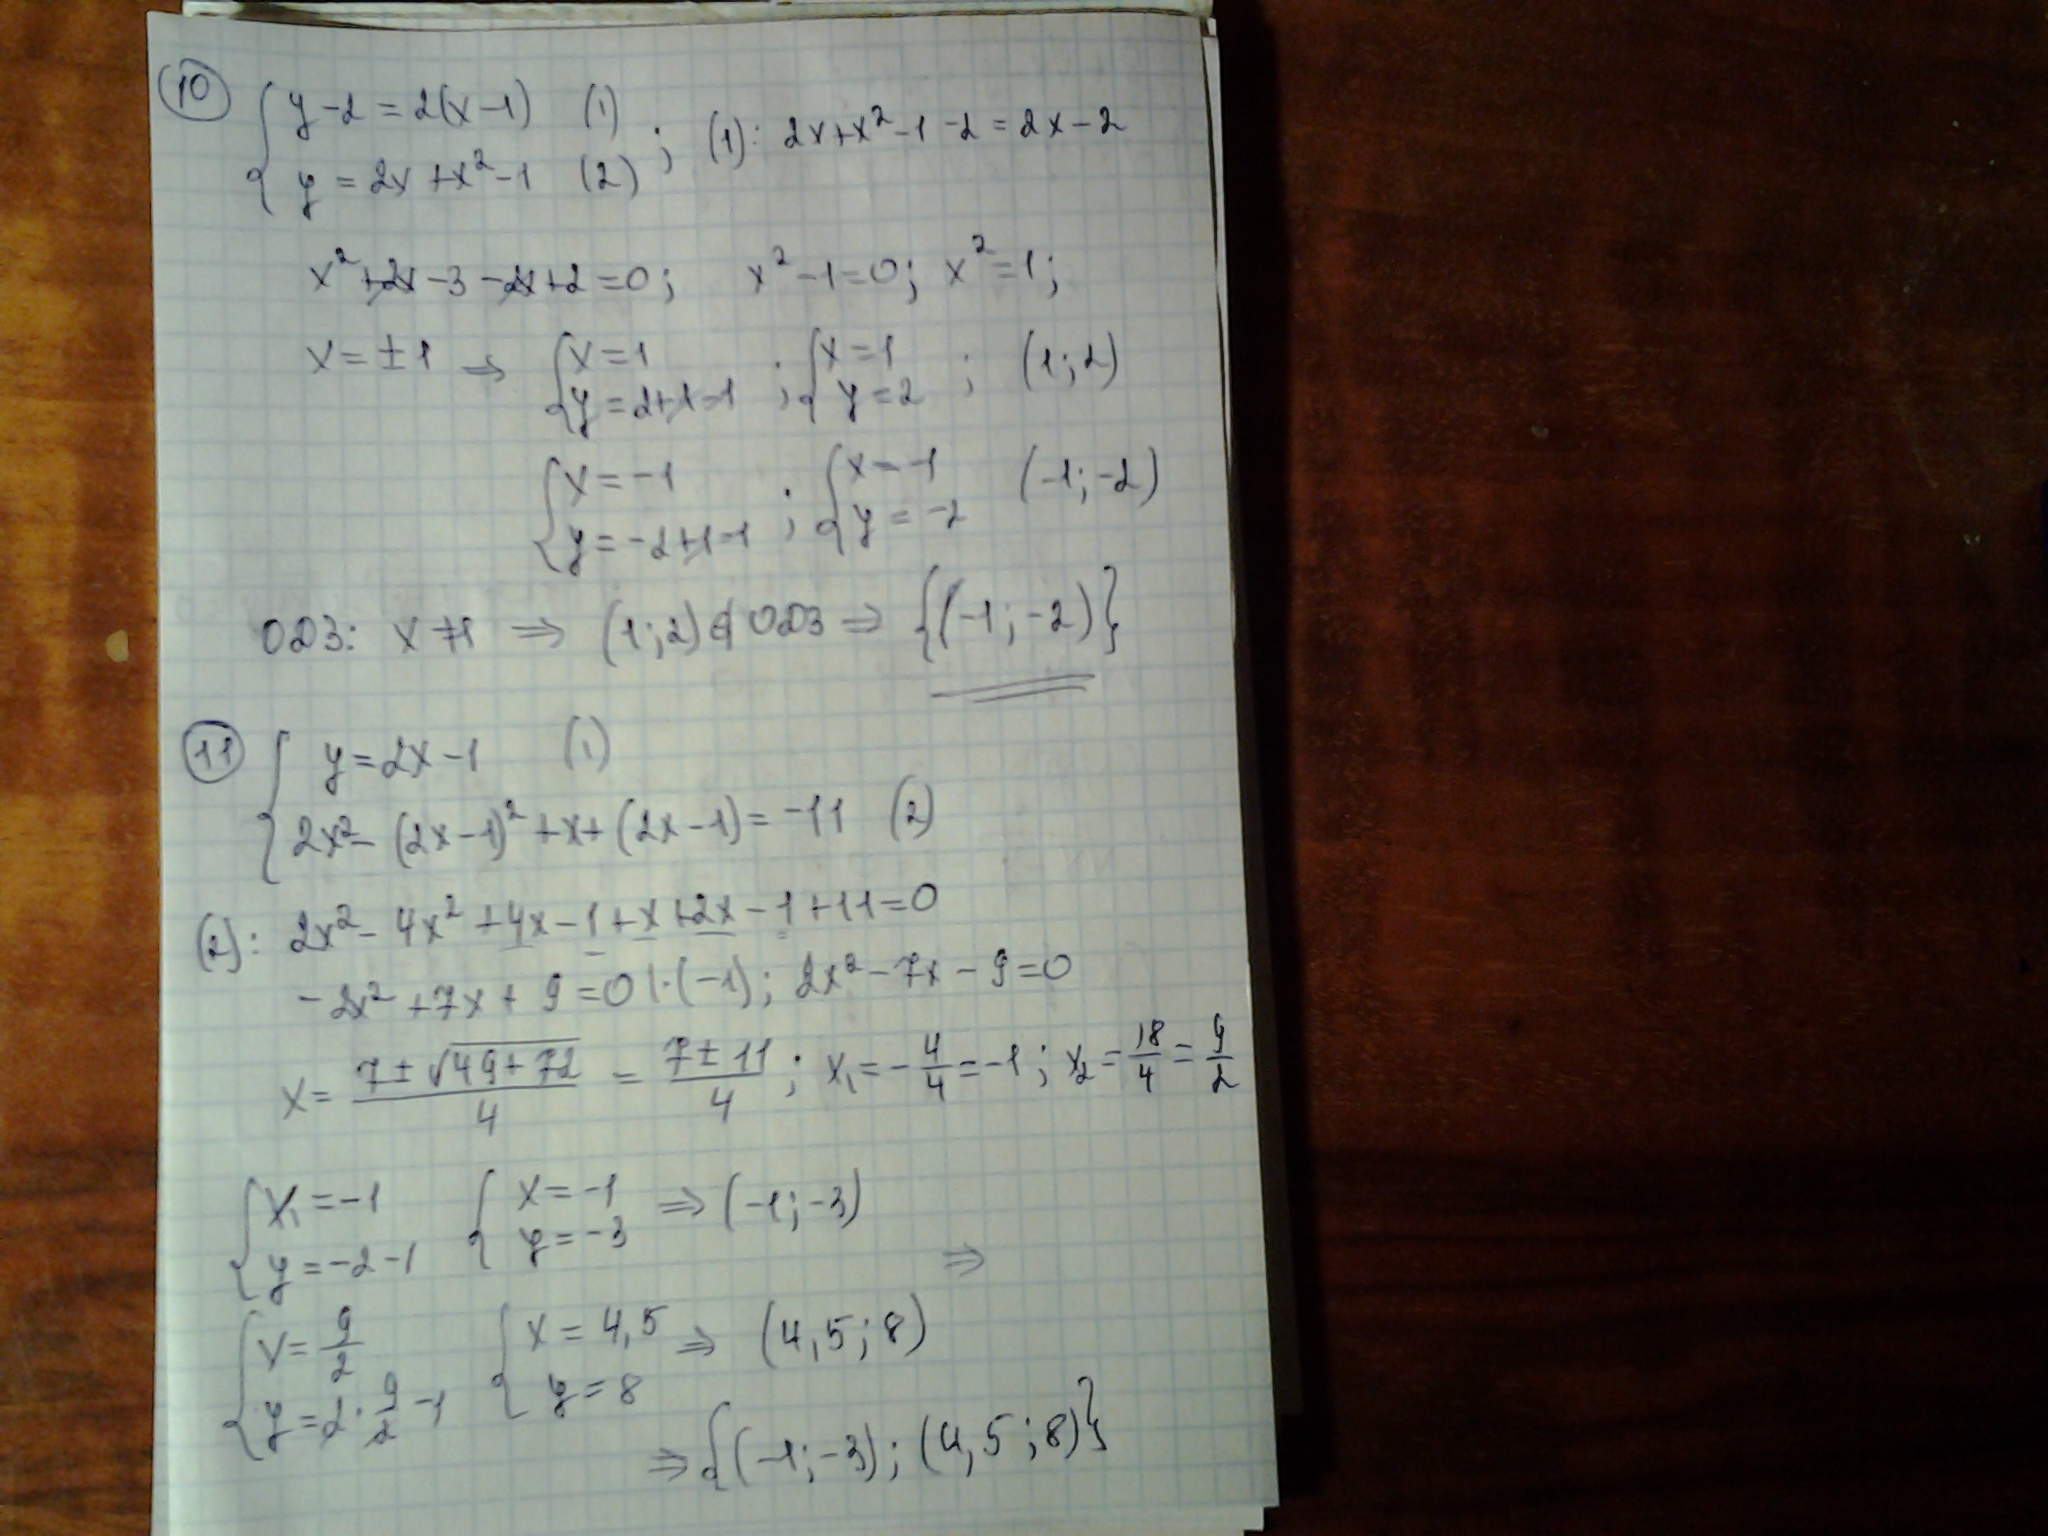 10 { y-2=2(x-1) (1) ; (1): 2x+x²-1-2=2x-2
y=2x+x²-1 (2)
x²+2x-3-2x+2=0; x²-1=0; x²=1;
x=±1 ⇒ { x=1 ; { x=1 ; (1;2)
y=2+1-1 y=2
{ x=-1 ; { x=-1 (-1;-2)
y=-2+1-1 y=-2
ОДЗ: x≠1 ⇒ (1;2)∉ОДЗ ⇒ {(-1;-2)}
11 { y=2x-1 (1)
2x²-(2x-1)²+x+(2x-1)=-11 (2)
(2): 2x²-4x²+4x-1+x+2x-1+11=0
-2x²+7x+9=0 |·(-1); 2x²-7x-9=0
x=(7±√(49+72))/4=(7±11)/4; x₁=-4/4=-1; x₂=18/4=9/2
{ x₁=-1 { x=-1 ⇒ (-1;-3)
y=-2-1 y=-3
⇒
{ x=9/2 { x=4,5 ⇒ (4,5;8)
y=2·9/2-1 y=8
⇒ {(-1;-3);(4,5;8)}